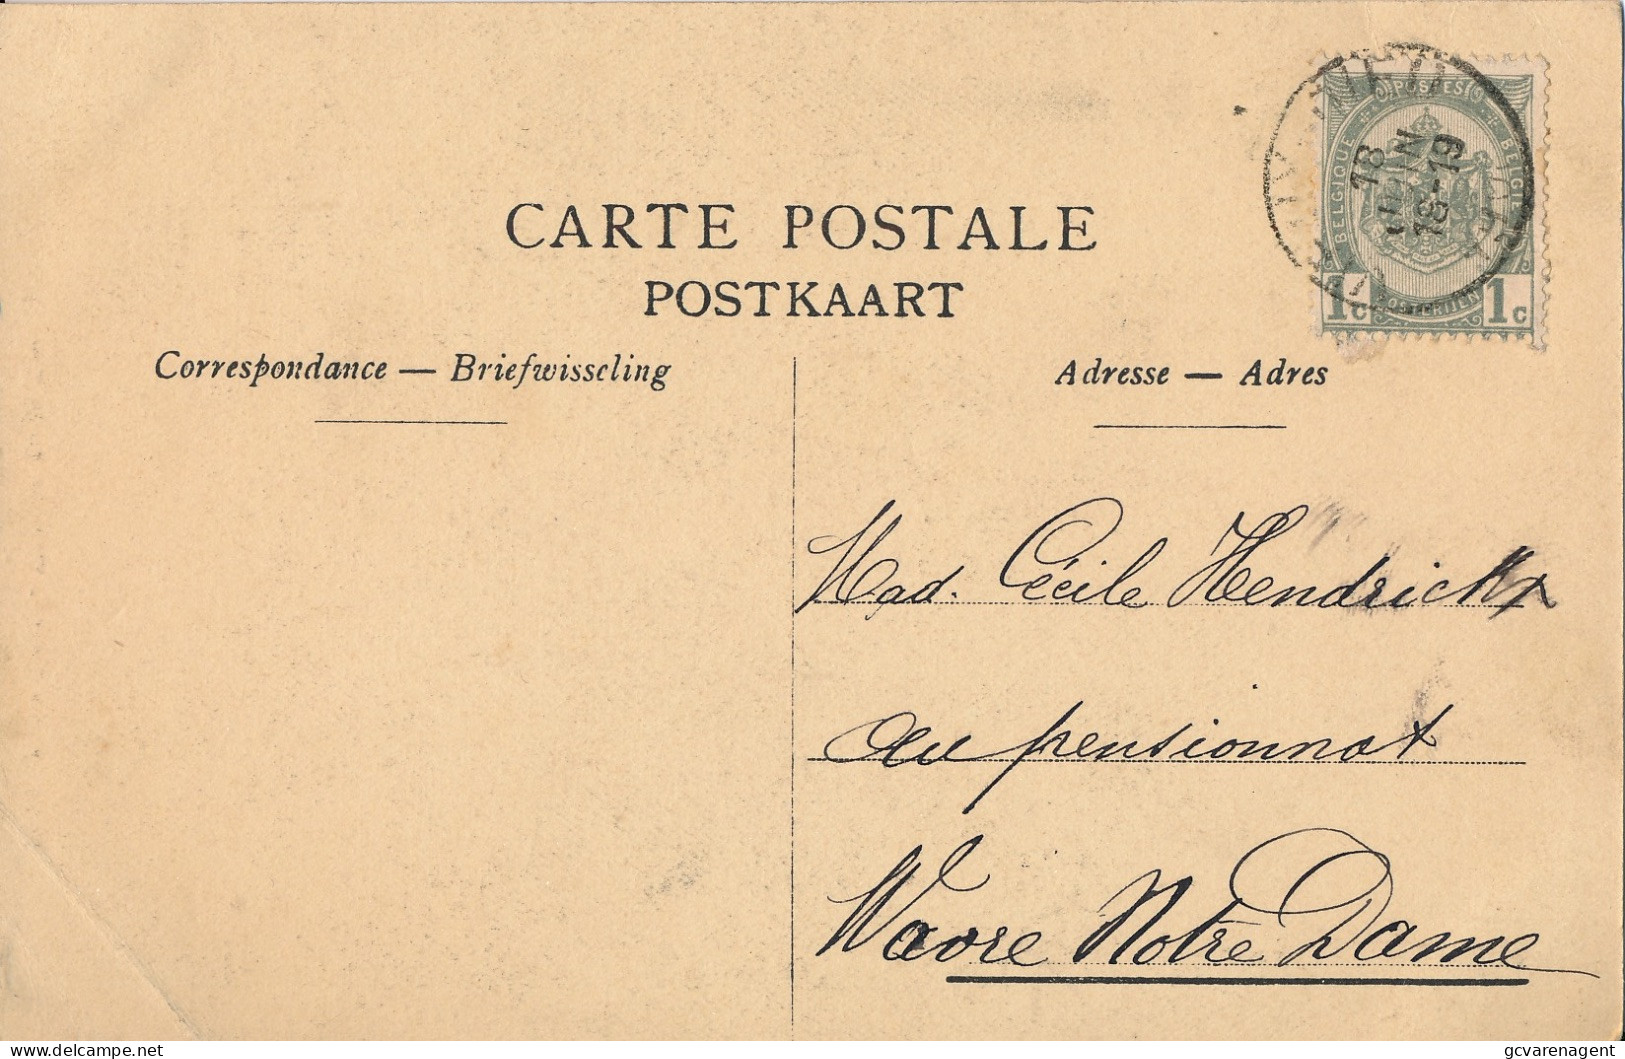 CARTE POSTALE
POSTKAART
Correspondance — Briefwisseling
Adresse — Adres
POSTES
BELGIQUE
BELGIË
POSTERIJEN
1c 1c
18
JUIN
18-19
Mad. Cécile Hendrickx
au pensionnat
Wavre Notre Dame
gcvarenagent